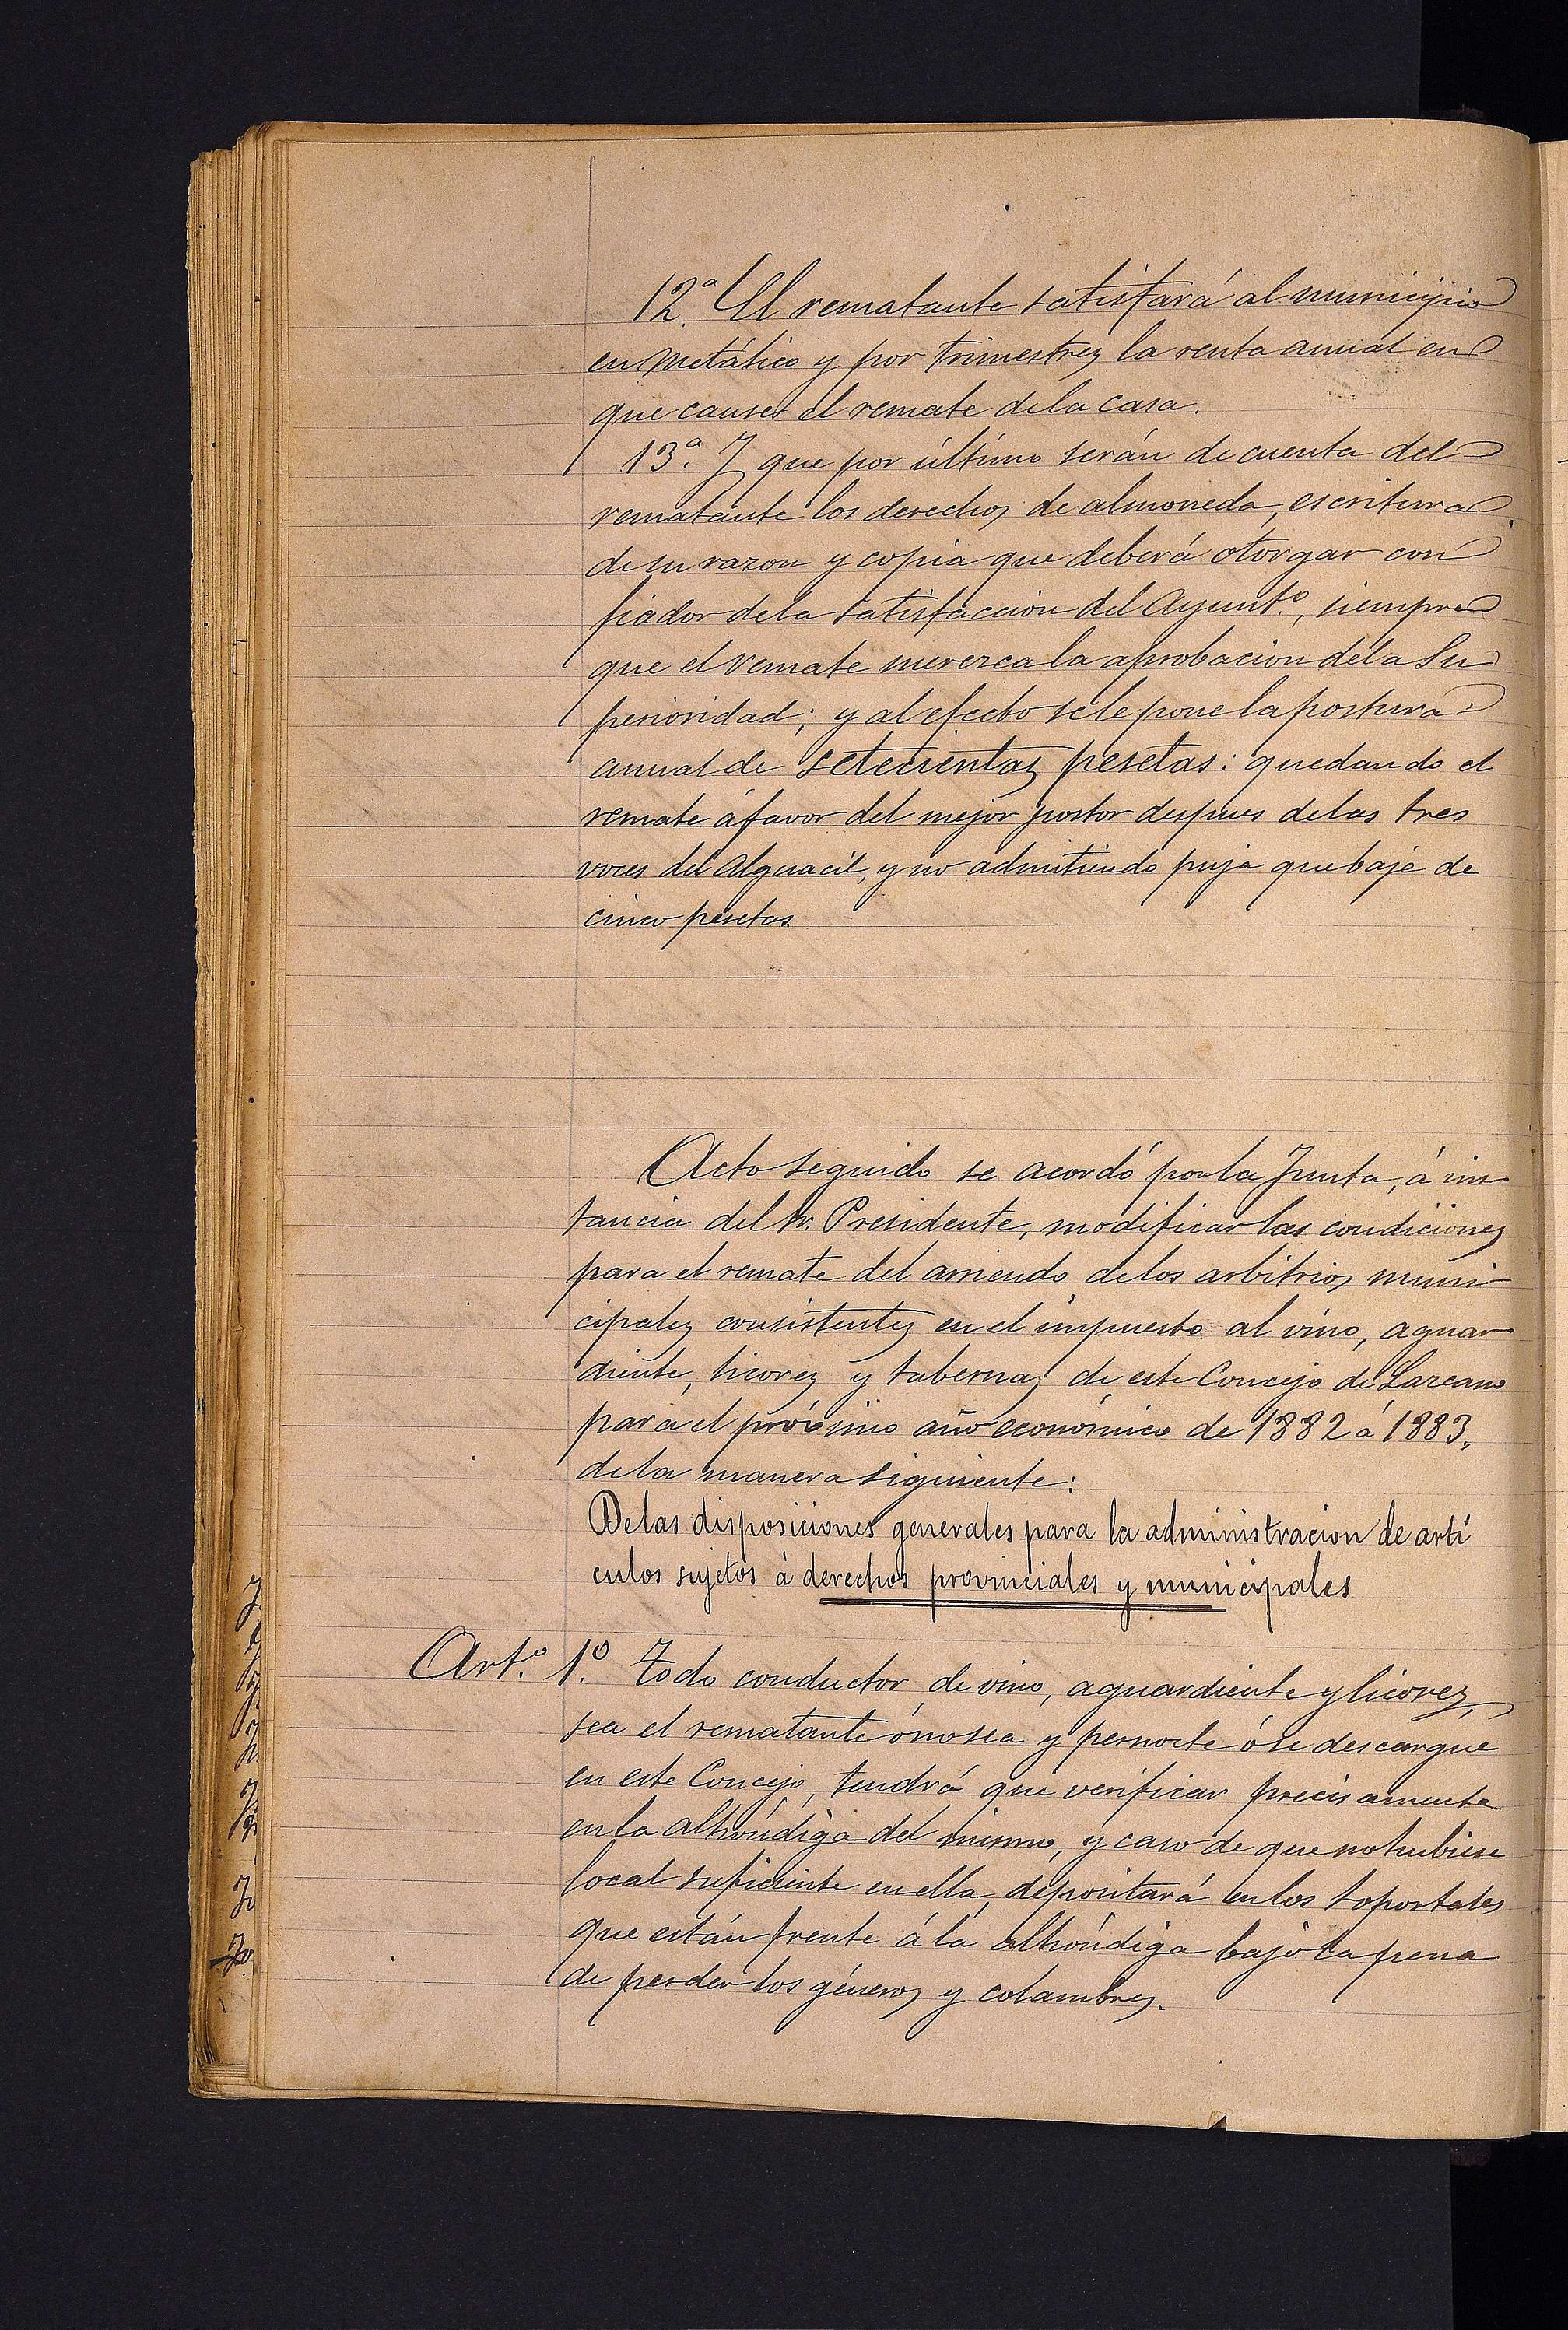 12.ª El rematante satisfará al municipio
en metálico y por trimestres la renta anual en
que cause el remate de la casa.
13.ª Y que por último serán de cuenta del
rematante los derechos de almoneda, escritura
de su razon y copia que deberá otorgar con
fiador de la satisfaccion del Ayunt.º, siempre
que el remate merezca la aprobacion de la Su
perioridad; y al efecto se le pone la postura
anual de setecientas pesetas: quedando el
remate á favor del mejor postor despues de las tres
voces del Alguacil, y no admitiendo puja que baje de
cinco pesetas.
Acto seguido se acordó por la Junta, á ins-
tancia del Sr. Presidente, modificar las condiciones
para el remate del arriendo de los arbitrios muni-
cipales consistentes en el impuesto al vino, aguar-
diente, licores y tabernas de este Concejo de Lazcano
para el próximo año económico de 1882 á 1883,
de la manera siguiente:
De las disposiciones generales para la administracion de artí
culos sujetos à derechos provinciales y municipales
Art.º 1.º Todo conductor de vino, aguardiente y licores,
sea el rematante ó no sea y pernocte ó se descargue
en este Concejo, tendrá que verificar precisamente
en la alhóndiga del mismo, y caso de que no hubiese
local suficiente en ella, depositará en los soportales
que están frente á la alhóndiga bajo la pena
de perder los géneros y colambres.